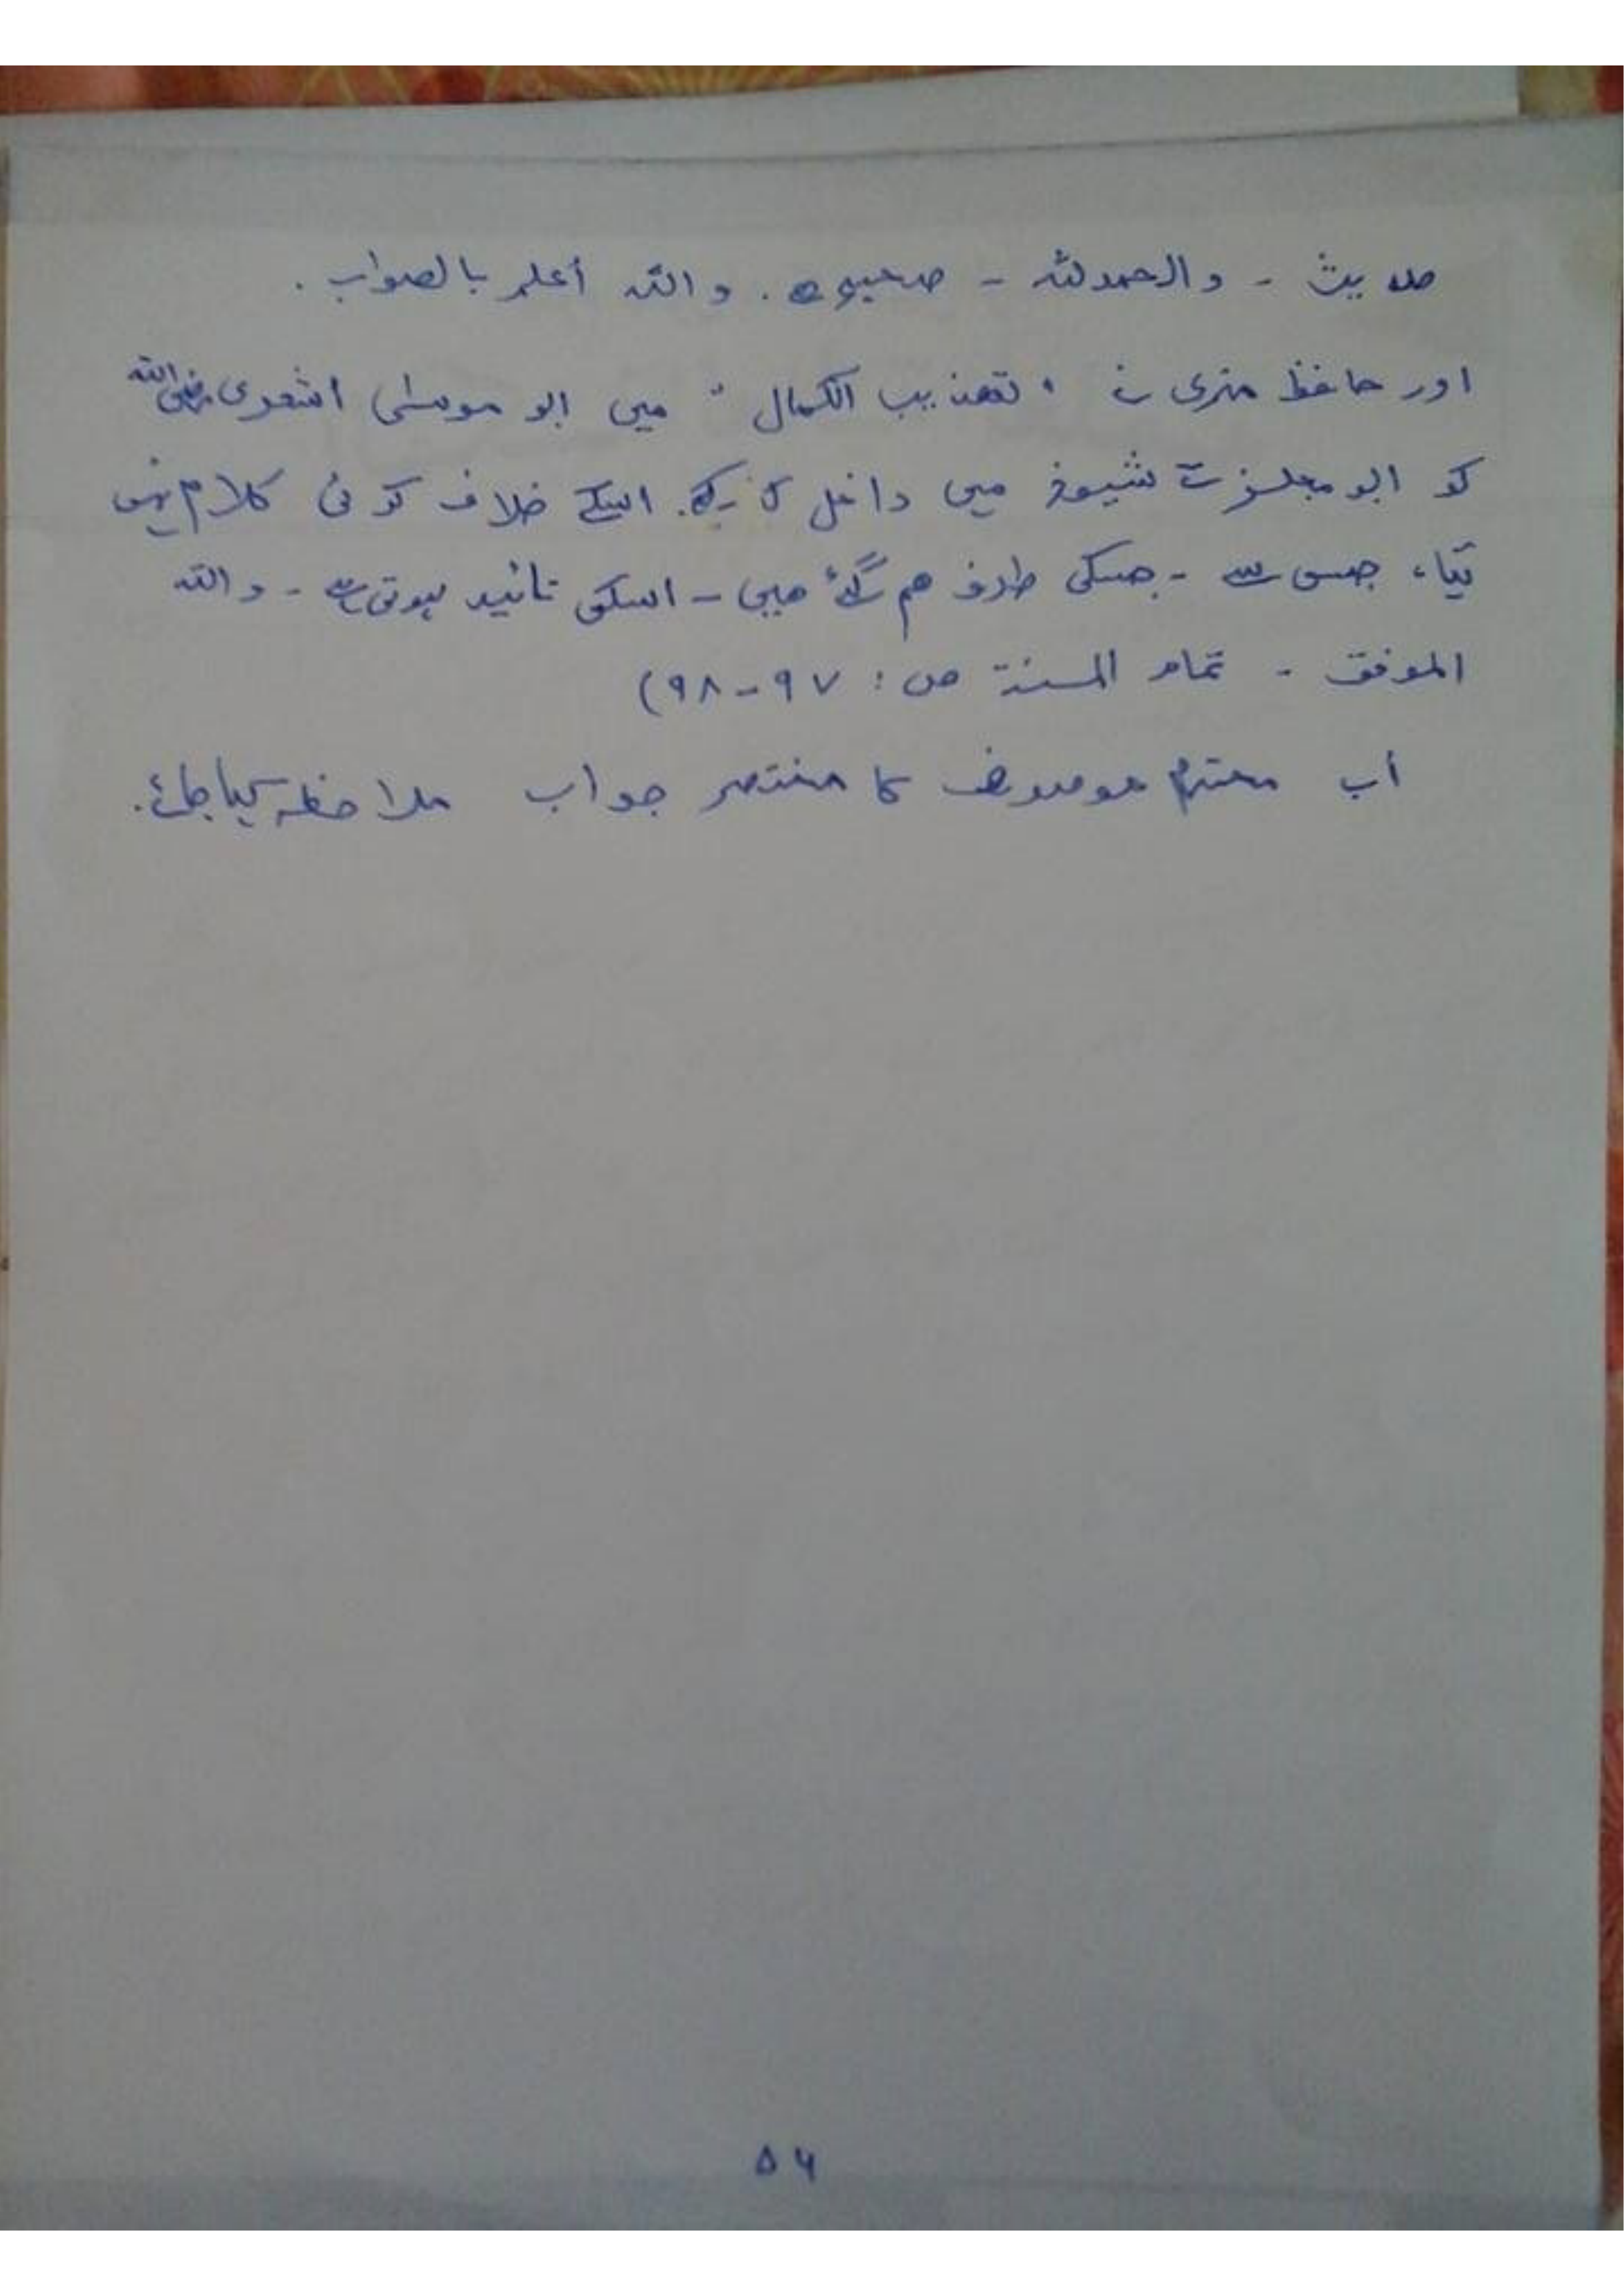 حدیث - والحمدللہ - صحیح ہے. واللہ أعلم بالصواب.
اور حافظ مزی نے "تھذیب الکمال" میں ابو موسیٰ اشعری رضی اللہ
کو ابو مجلز کے شیوخ میں داخل کر کے. اسکے خلاف کوئی کلام نہیں
کیا، جس سے - جسکی طرف ھم گئے ھیں - اسکی تائید ہوتی ہے - واللہ
الموفق - تمام المسنة ص: ۹۷-۹۸)
أب محترم موصوف کا مختصر جواب ملاحظہ کیا جائے.
۵۶